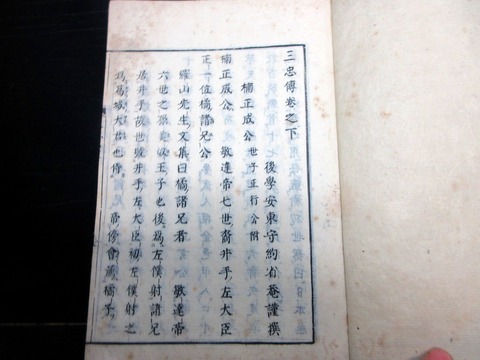 三忠傳卷之下
後學安東守約省菴謹撰
楠正成公 世子正行公附
楠正成公 敏達帝七世裔井手左大臣
正一位橘諸兄公
羅山先生文集曰橘諸兄者 敏達帝
六世之孫 王子也後爲左僕射諸兄
居井手故世號井手左大臣初左僕射之
爲葛城大 也侍 帝傍會薦橘子